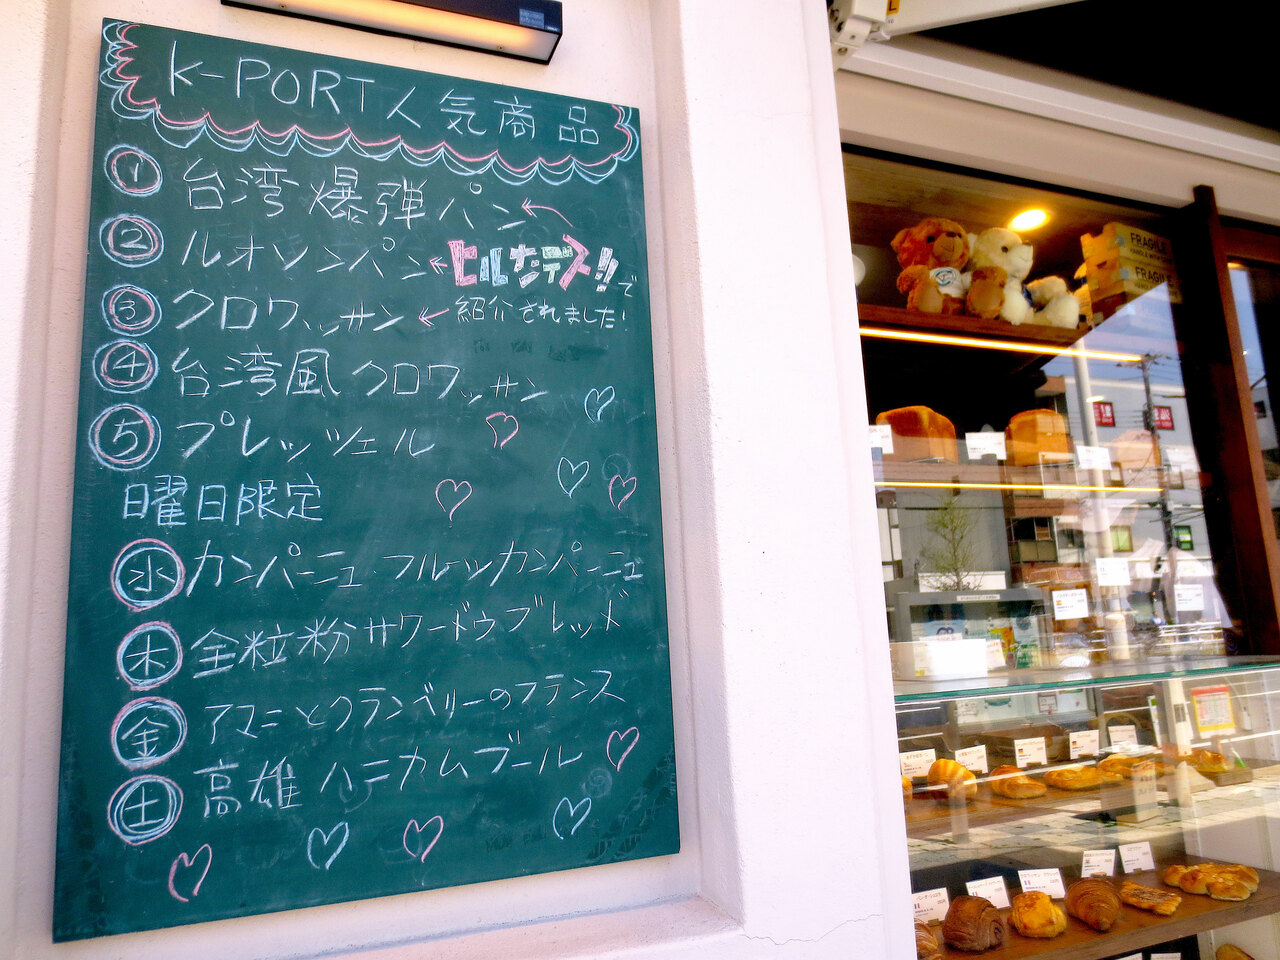 K-PORT人気商品
① 台湾爆弾パン
② ルオソンパン ← ヒルナンデス!!で
③ クロワッサン ← 紹介されました!
④ 台湾風クロワッサン
⑤ プレッツェル
曜日限定
水 カンパーニュ フルーツカンパーニュ
木 全粒粉サワードゥブレッド
金 アマニとクランベリーのフランス
土 高雄ハニカムブール
FRAGILE
FRAGILE